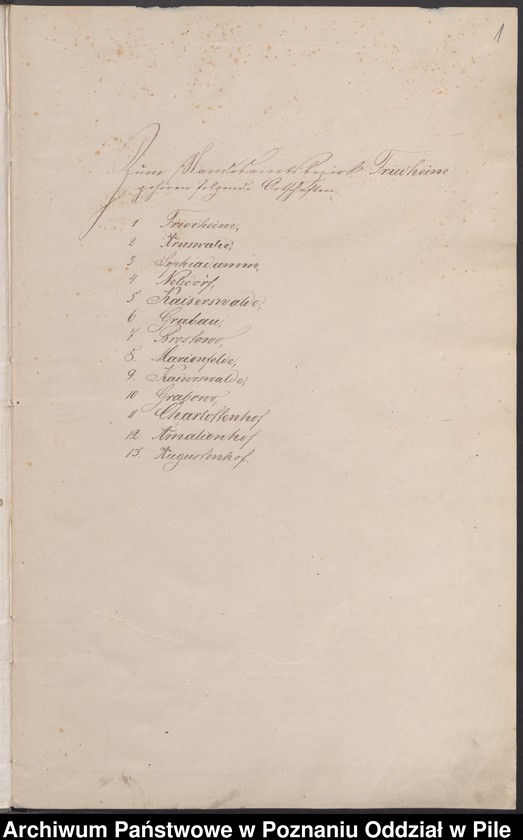 1
Zum Standesamtsbezirk Friedheim
gehören folgende Ortschaften.
1 Friedheim,
2 Arnswalde,
3 Sophiadamm,
4
5 Kaiserswalde,
6. Grabau,
7 Brostowo,
8. Marienfelde,
9. Kaiserswalde,
10 Grabowo,
11 Charlottenhof
12 Amalienhof
13. Augustenhof.
Archiwum Państwowe w Poznaniu Oddział w Pile